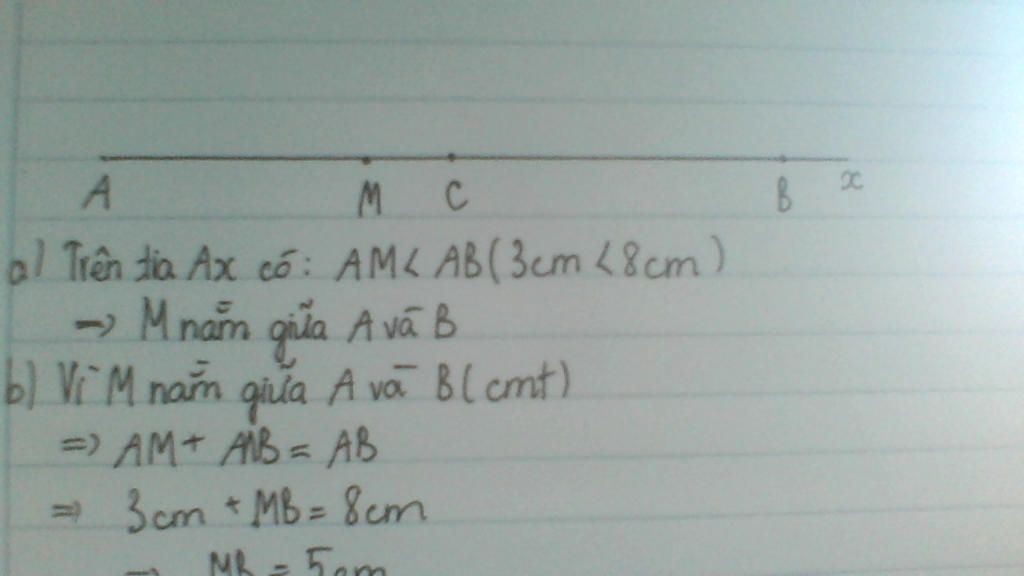 A M C B x
a) Trên tia Ax có: AM < AB (3cm < 8cm)
→ M nằm giữa A và B
b) Vì M nằm giữa A và B (cmt)
⇒ AM + MB = AB
⇒ 3cm + MB = 8cm
⇒ MB = 5cm